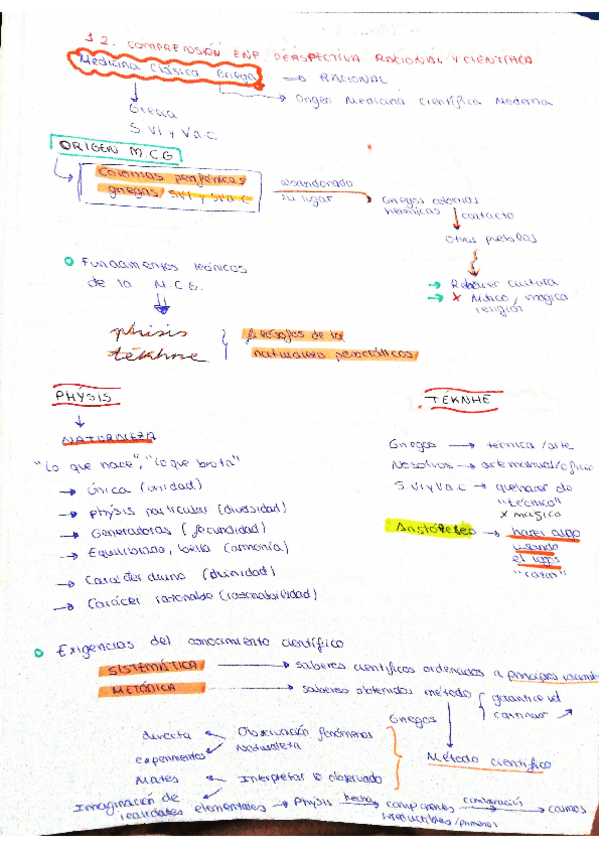 1.2. COMPRENSIÓN ENF PERSPECTIVA RACIONAL Y CIENTÍFICA
Medicina Clásica Griega → RACIONAL
→ Origen Medicina Científica Moderna
Grecia
S. VI y V a.C
ORIGEN M.C.G
Colonias periféricas
griegas/ SVI y SV a.C
abandonado
su lugar
Griegos colonias
contacto
Otros pueblos
→ Rehacer cultura
→ X Mítico, mágica
religios
Fundamentos teóricos
de la M.C.G.
phisis
tékhne
filósofos de la
naturaleza presocráticos
PHÝSIS
TÉKNHE
NATURALEZA
"lo que nace", "lo que brota"
→ única (unidad)
→ phýsis particular (diversidad)
→ Generadoras (fecundidad)
→ Equilibrada, bella (armonía)
→ Carácter divino (divinidad)
→ Carácer razonable (razonabilidad)
Griegos → técnica/arte
Nosotros → arte manual/oficio
S. VI y V a.C → quehacer de
"técnico"
x mágico
Aristóteles → hacer algo
usando
el logos
"razón"
Exigencias del conocimiento científico
SISTEMÁTICA → saberes científicos ordenados a principios
METÓDICA → saberes obtenidos método
garantice vd
continuar
Griegos
Método científico
directa ← Observación fenómenos
Naturaleza
experimentos
Mates ← Interpretar lo observado
Imaginación de
realidades elementales → Phýsis hecha componentes combinación → cosmos
irreductibles/primarios